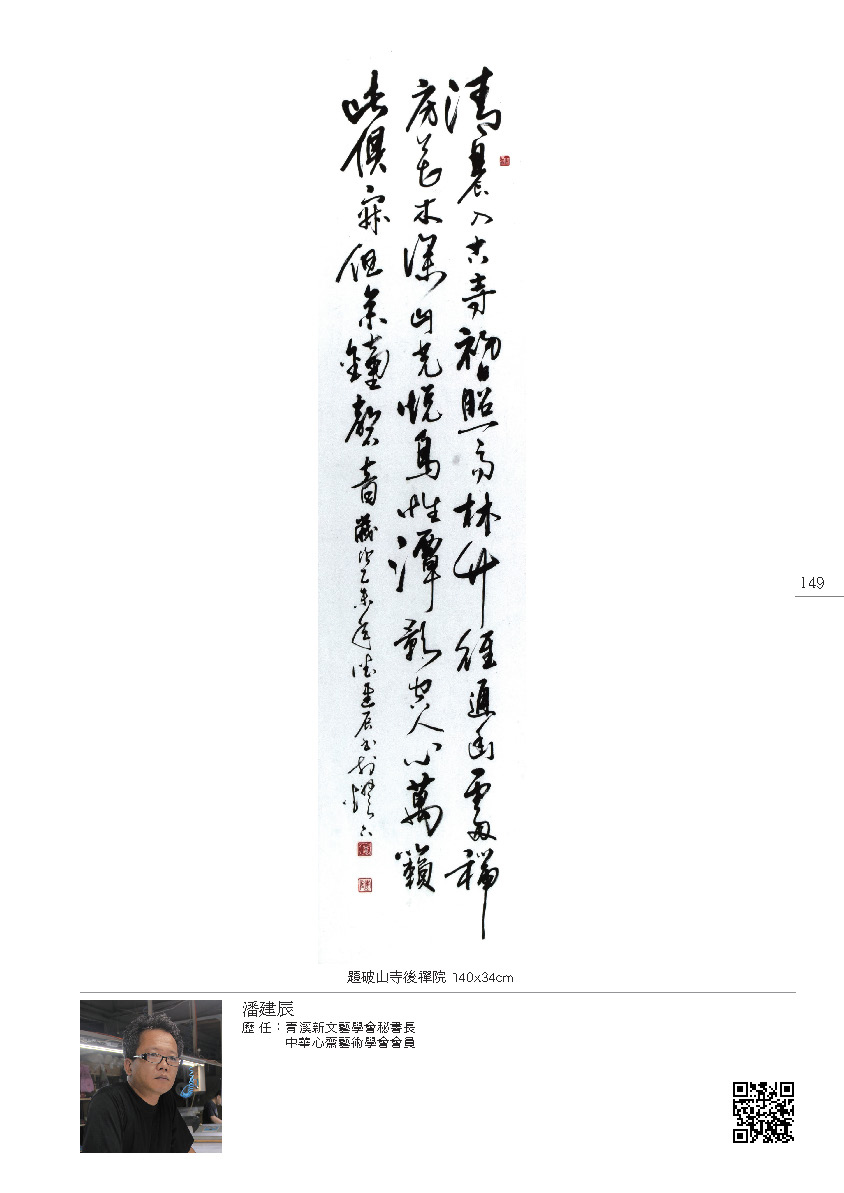 清晨入古寺初日照高林竹徑通幽處禪
房花木深山光悅鳥性潭影空人心萬籟
此俱寂但余鐘磬音歲次乙未年潘建辰書於
149
題破山寺後禪院 140x34cm
潘建辰
歷 任：青溪新文藝學會秘書長
中華心齋藝術學會會員